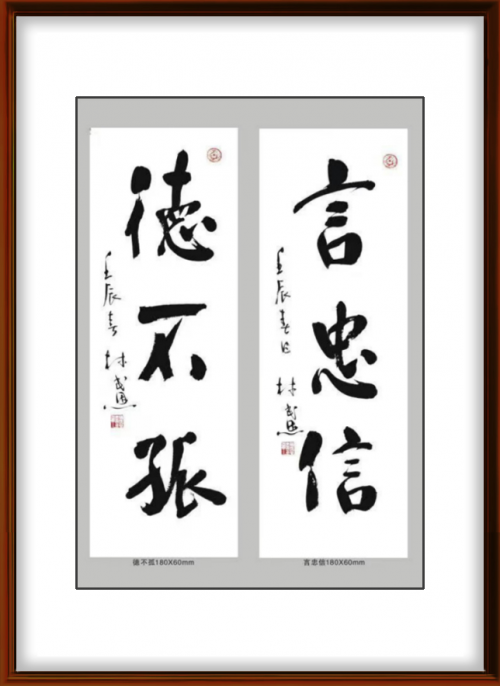 言忠信
壬辰春日 林
德不孤
壬辰春 林
德不孤180X60mm
言忠信180X60mm